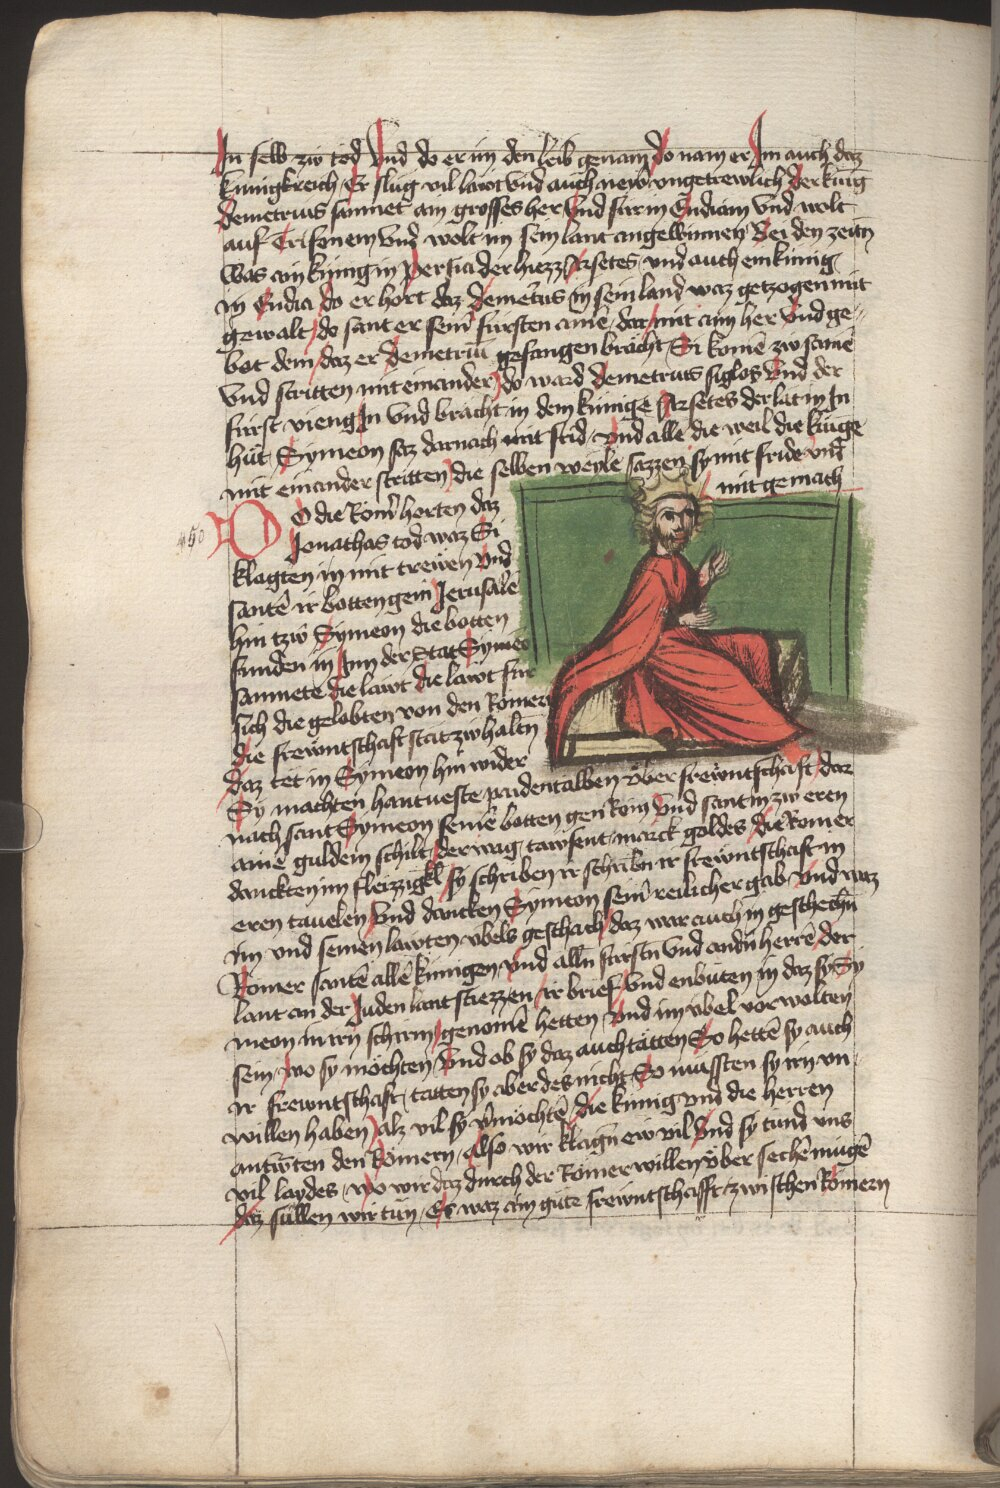 In selb zw tod Vnd do er im den leib genam do nam er Im auch daz
kunigkreich Er slug vil lawt vnd auch new vngetrewlich der kuiḡ
demetrius samnet ain grosses her Vnd fur in Endiam vnd wolt
auf Trifonem vnd wolt im sein lant angewinnen Bei den zeitn̄
Was ain kunig in persia der hiezz Arsetes vnd auch ein kunig
in Endia do er hort daz demetrius in sein land waz getzogen mit
gewalt do sant er seiner fursten ainē dar mit aim her vnd ge
bot dem daz er demetriū gefangen bracht Si komē zw samē
vnd stritten mit einander do ward demetrius siglos vnd der
furst vieng In vnd bracht in dem kunige Arsetes der lat in In
hut Symeon saz darnach mit frid vnd alle die weil die kunge
mit einander stritten die selben weyle sazzen sy mit fride vnd
mit gemach
450
DO die Romer horten daz
Jonathas tod waz Si
klagten in mit trewen vnd
santē ir botten gein Jerusalē
hin tzw Symeon die botten
funden in Inn der stat Symeo
samnete die lawt die lawt fur
sich die gelobten von den Romern
die frewntschaft stat zw haltn̄
daz tet in Symeon hin wider
Sy machten hantueste paidentalben vber frewntschaft dar
nach sant Symeon seinē botten gen Rom vnd sant in zw eren
ainē guldein schilt der wag tawsent marck goldes die Romer
danckten im fleizzigkl sy schriben ir frewntschaft in
eren tauelen vnd dancken Symeon seiner reilicher gab vnd waz
im vnd seinen lawten vbels geschach daz war auch in geschechn̄
Romer santē allē kunigen vnd alln fursten vnd andn̄ herrē der
lant an der Juden lant stiezzen ir brief vnd enbuten in daz sy Sy
meon in irn schirm genomē hetten vnd im vbel vor wolten
sein wo sy mochten Vnd ob sy daz auch tatten So hettē sy auch
ir frewntschaft tatten sy aber des nicht So mussten sy irn vn
willen haben alz vil sy vermochtē die kunig vnd die herren
antwrten den Romern Also wir klagn̄ ew vil vnd sy tund vns
vil laydes wo wir daz durch der Romer willen vber sechē mugē
daz sullen wir tun Er waz ain gute frewntschafft zwischen Romern